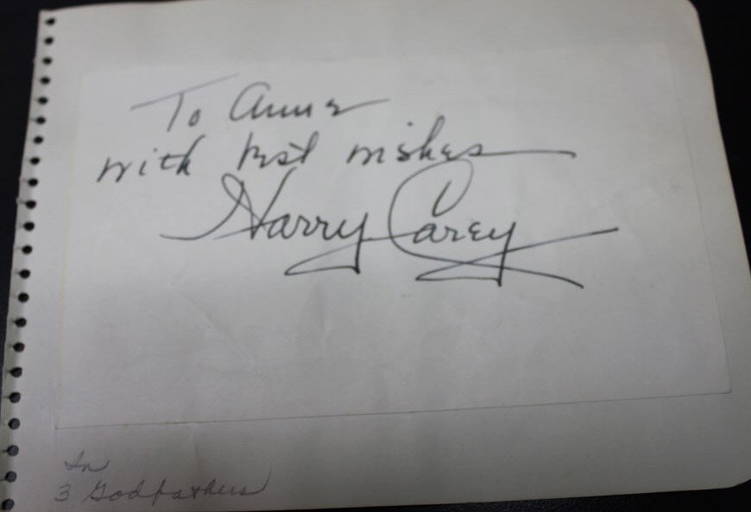 To Anne
with best wishes
Harry Carey
In
3 Godfathers